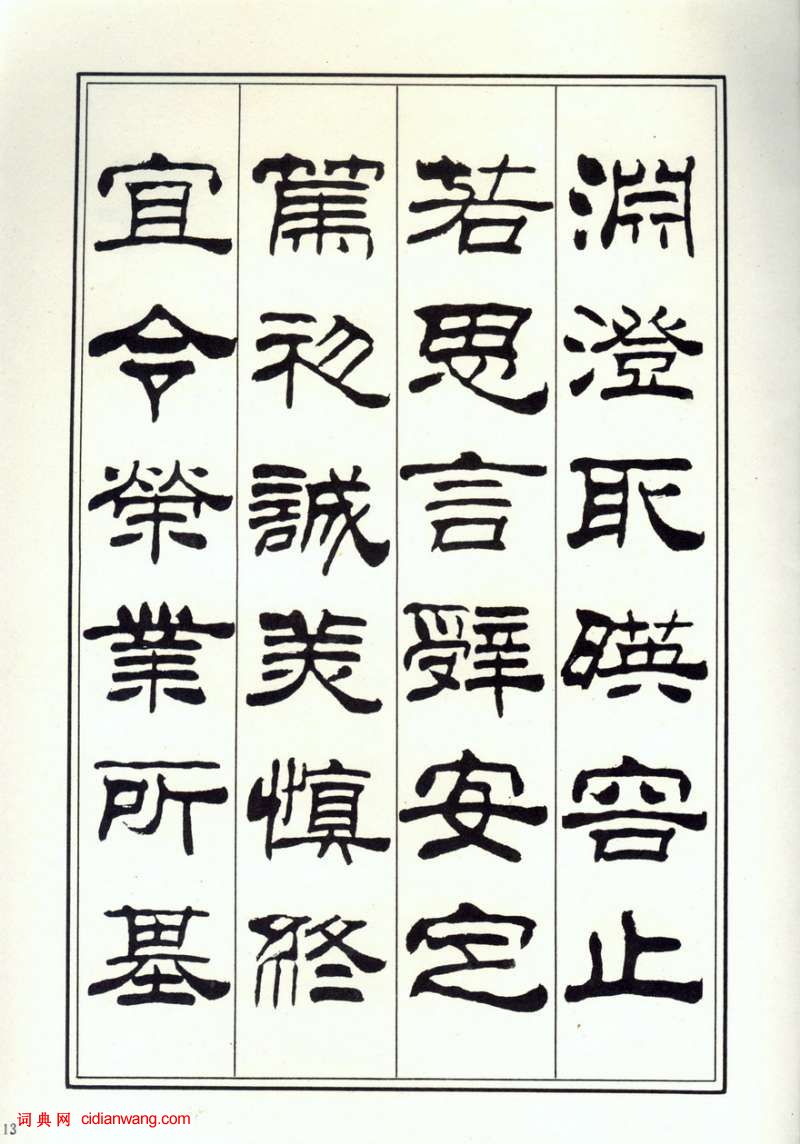 淵澄取暎容止
若思言辭安定
篤初誠美慎終
宜令榮業所基
13
词典网 cidianwang.com